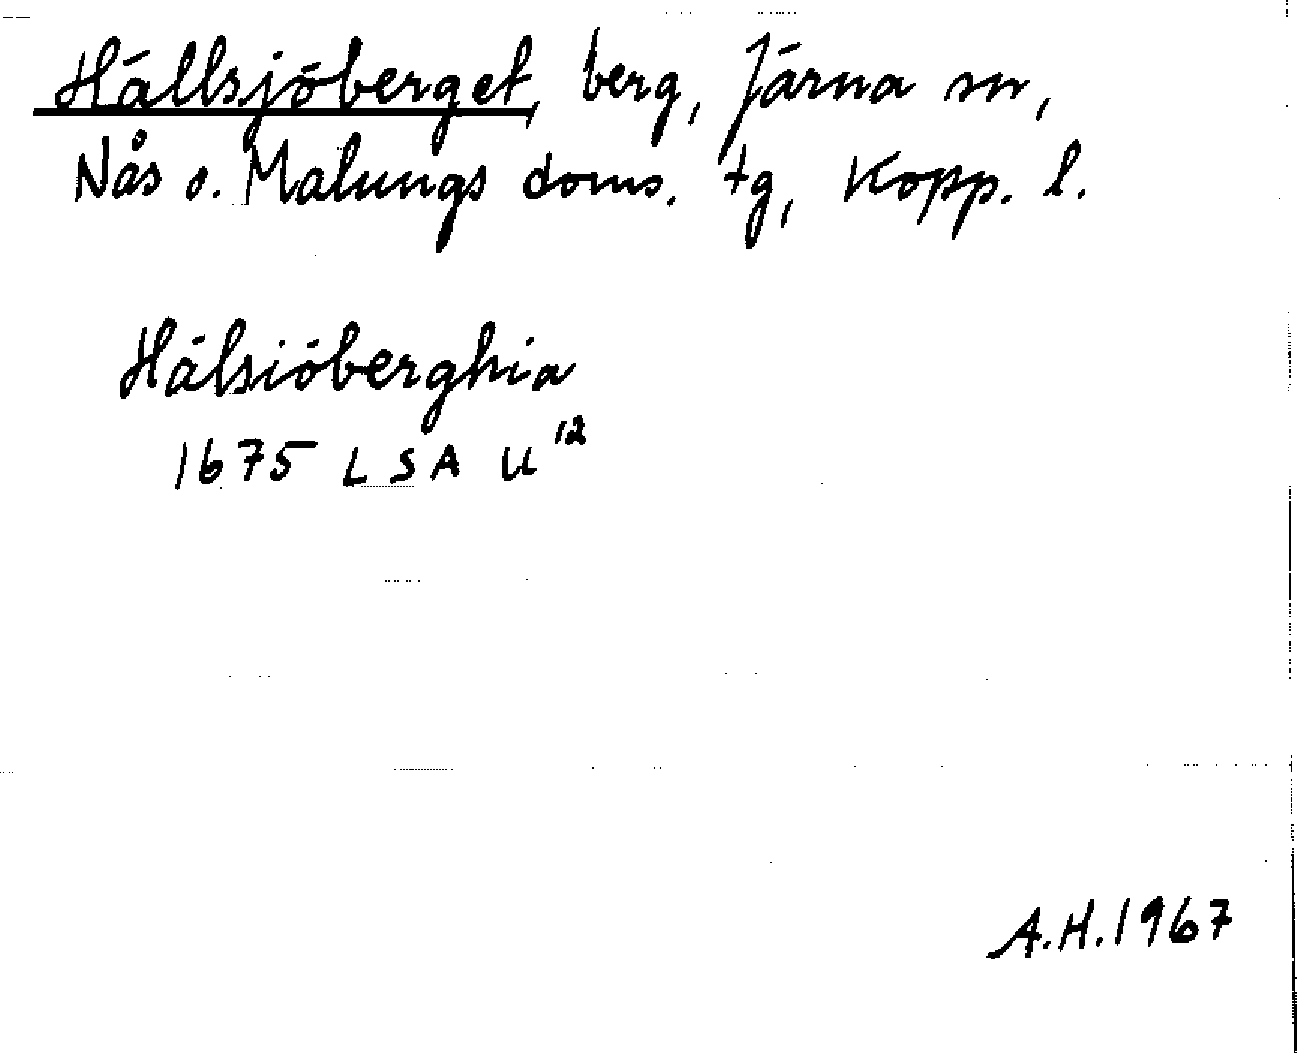 Hällsjöberget, berg, Järna sn,
Nås o. Malungs doms. tg, Kopp. l.
Hälsiöberghia
1675 LSA U¹²
A.H. 1967